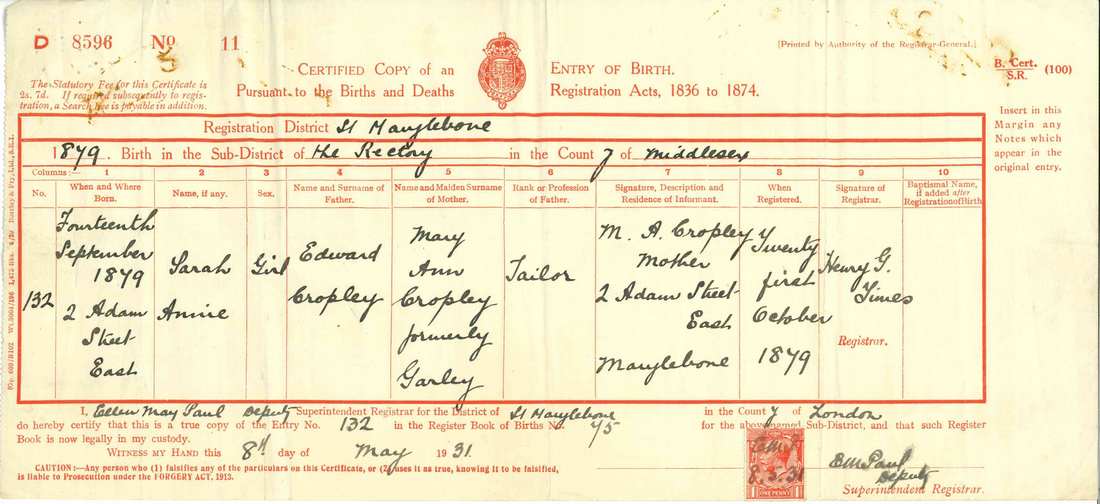 D 8596 No 11
[Printed by Authority of the Registrar-General.]
B. Cert.
S.R. (100)
CERTIFIED COPY of an ENTRY OF BIRTH.
Pursuant to the Births and Deaths Registration Acts, 1836 to 1874.
The Statutory Fee for this Certificate is
2s. 7d. If required subsequently to regis-
tration, a Search Fee is payable in addition.
Insert in this
Margin any
Notes which
appear in the
original entry.
Registration District St Marylebone
1879. Birth in the Sub-District of the Rectory in the County of Middlesex
Columns :— 1 2 3 4 5 6 7 8 9 10
No. When and Where Born. Name, if any. Sex. Name and Surname of Father. Name and Maiden Surname of Mother. Rank or Profession of Father. Signature, Description and Residence of Informant. When Registered. Signature of Registrar. Baptismal Name, if added after Registration of Birth
132
Fourteenth
September
1879
2 Adam
Street
East
Sarah
Annie
Girl
Edward
Cropley
Mary
Ann
Cropley
formerly
Garley
Tailor
M. A. Cropley
Mother
2 Adam Street
East
Marylebone
Twenty
first
October
1879
Henry G.
Times
Registrar.
I, Ellen May Paul Deputy Superintendent Registrar for the District of St Marylebone in the County of London
do hereby certify that this is a true copy of the Entry No. 132 in the Register Book of Births No. 45 for the above-named Sub-District, and that such Register
Book is now legally in my custody.
WITNESS MY HAND this 8th day of May 1931.
CAUTION:—Any person who (1) falsifies any of the particulars on this Certificate, or (2) uses it as true, knowing it to be falsified,
is liable to Prosecution under the FORGERY ACT, 1913.
8.5.31
ONE PENNY
EM Paul
Deputy
Superintendent Registrar.